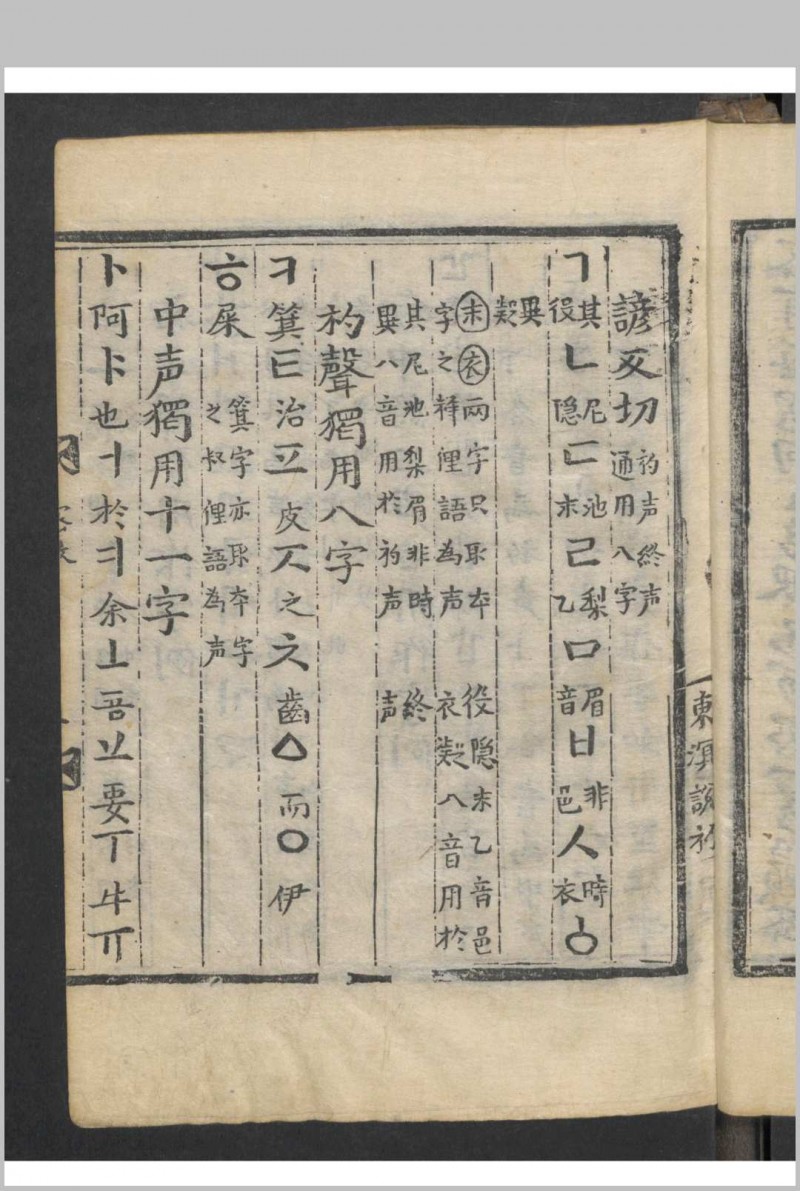 諺反切 初声終声通用八字
ㄱ其役ㄴ尼隐ㄷ池末ㄹ梨乙ㅁ眉音ㅂ非邑ㅅ時衣ㆁ
異凝
末衣兩字只取本字之釋俚語為声 役隐末乙音邑衣凝八音用於
其尼池梨眉非時異八音用於初声 終声
初聲獨用八字
ㅋ箕ㅌ治ㅍ皮ㅈ之ㅊ齒ㅿ而ㅇ伊
ㅎ屎 箕字亦取本字之釋俚語為声
中声獨用十一字
ㅏ阿ㅑ也ㅓ於ㅕ余ㅗ吾ㅛ要ㅜ牛ㅠ